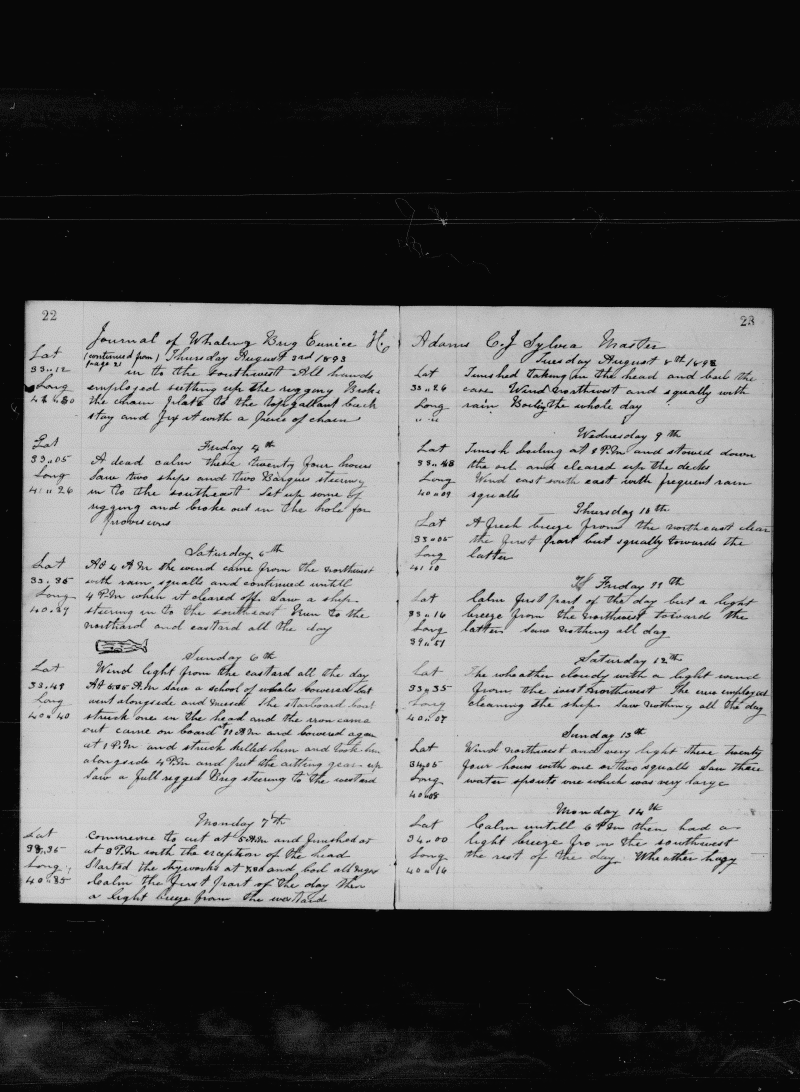 22
Journal of Whaling Brig Eunice H.
(continued from page 2) Thursday August 3rd 1893
Lat
33"12
Long
in to the Southwest All hands
employed setting up the rigging Broke
the chain plate to the topgallant back
stay and fix it with a piece of chain
Friday 4th
Lat
33"05
Long
41"26
A dead calm these twenty four hours
Saw two ships and two Barques steering
in to the southeast Set up some of
rigging and broke out in the hole for
provisions
Saturday 5th
Lat
33"35
Long
40"37
At 4 AM the wind came from the northwest
with rain squalls and continued untill
4 PM when it cleared off. Saw a ship
steering in to the southeast Run to the
northard and eastard all the day
Sunday 6th
Lat
33"49
Long
40"40
Wind light from the eastard all the day
At AM saw a school of whales Lowered but
went alongside and missed The starboard boat
struck one in the head and the iron came
out came on board 11 AM and lowered again
at 1 PM and struck killed him and took him
alongside 4 PM and put the cutting gear up
Saw a full rigged Brig steering to the westard
Monday 7th
Lat
33"35
Long
40"35
Commence to cut at 5 AM and finished at
at 3 PM with the exception of the head
Started the tryworks at and boil all night
Calm the first part of the day then
a light breeze from the westard
23
Adams C. J Sylvia Master
Tuesday August 8th 1893
Lat
33"26
Long
" "
Finished taking in the head and boil the
case Wind southwest and squally with
rain Boiling the whole day
Wednesday 9th
Lat
33"48
Long
40"09
Finish boiling at 1 PM and stowed down
the oil and cleared up the decks
Wind east south east with frequent rain
squalls
Thursday 10th
Lat
33"05
Long
41"10
A fresh breeze from the northeast clear
the first part but squally towards the
latter
Friday 11th
Lat
33"16
Long
39"51
Calm first part of the day but a light
breeze from the northwest towards the
latter Saw nothing all day
Saturday 12th
Lat
33"35
Long
40"07
The wheather cloudy with a light wind
from the west northwest The crew employed
cleaning the ship Saw nothing all the day
Sunday 13th
Lat
34"05
Long
40"08
Wind northwest and very light these twenty
four hours with one or two squalls Saw three
water spouts one which was very large
Monday 14th
Lat
34"00
Long
40"16
Calm untill 6 PM then had a
light breeze from the southwest
the rest of the day Wheather hazy